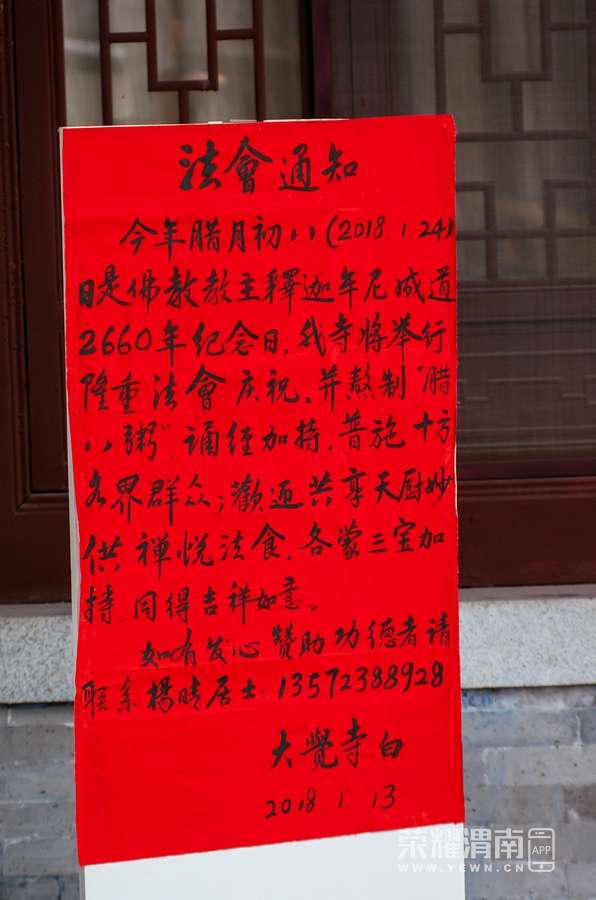 法會通知
今年腊月初八(2018.1.24)
日是佛教教主釋迦牟尼成道
2660年纪念日,我寺将举行
隆重法會庆祝。并熬制"腊
八粥"诵经加持,普施十方
各界群众;歡迎共享天厨妙
供禅悦法食,各蒙三宝加
持,同得吉祥如意。
如有发心赞助功德者,请
联系楊晴居士:13572388928.
大覺寺白
2018.1.13
荣耀渭南 APP
WWW.YEWN.CN